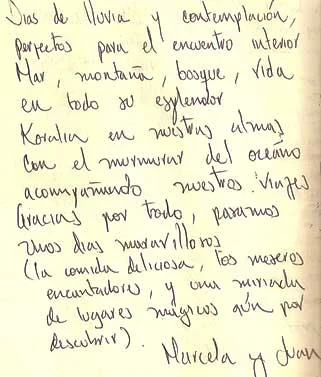 Dias de lluvia y contemplación,
perfectos para el encuentro interior
Mar, montaña, bosque, vida
en todo su esplendor
Koralia en nuestras almas
Con el murmurar del océano
acompañando nuestros viajes
Gracias por todo, pasamos
unos dias maravillosos
(la comida deliciosa, los meseros
encantadores, y una miriada
de lugares mágicos aún por
descubrir).
Marcela y Juan